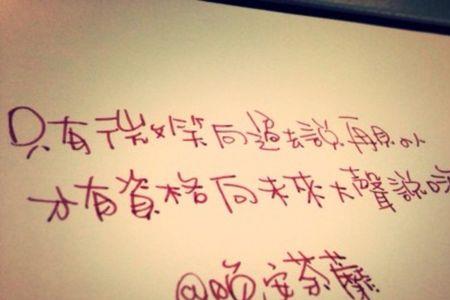 只有微笑向過去說再見的人
才有資格向未來大聲說嗨
@晚安荼蘼